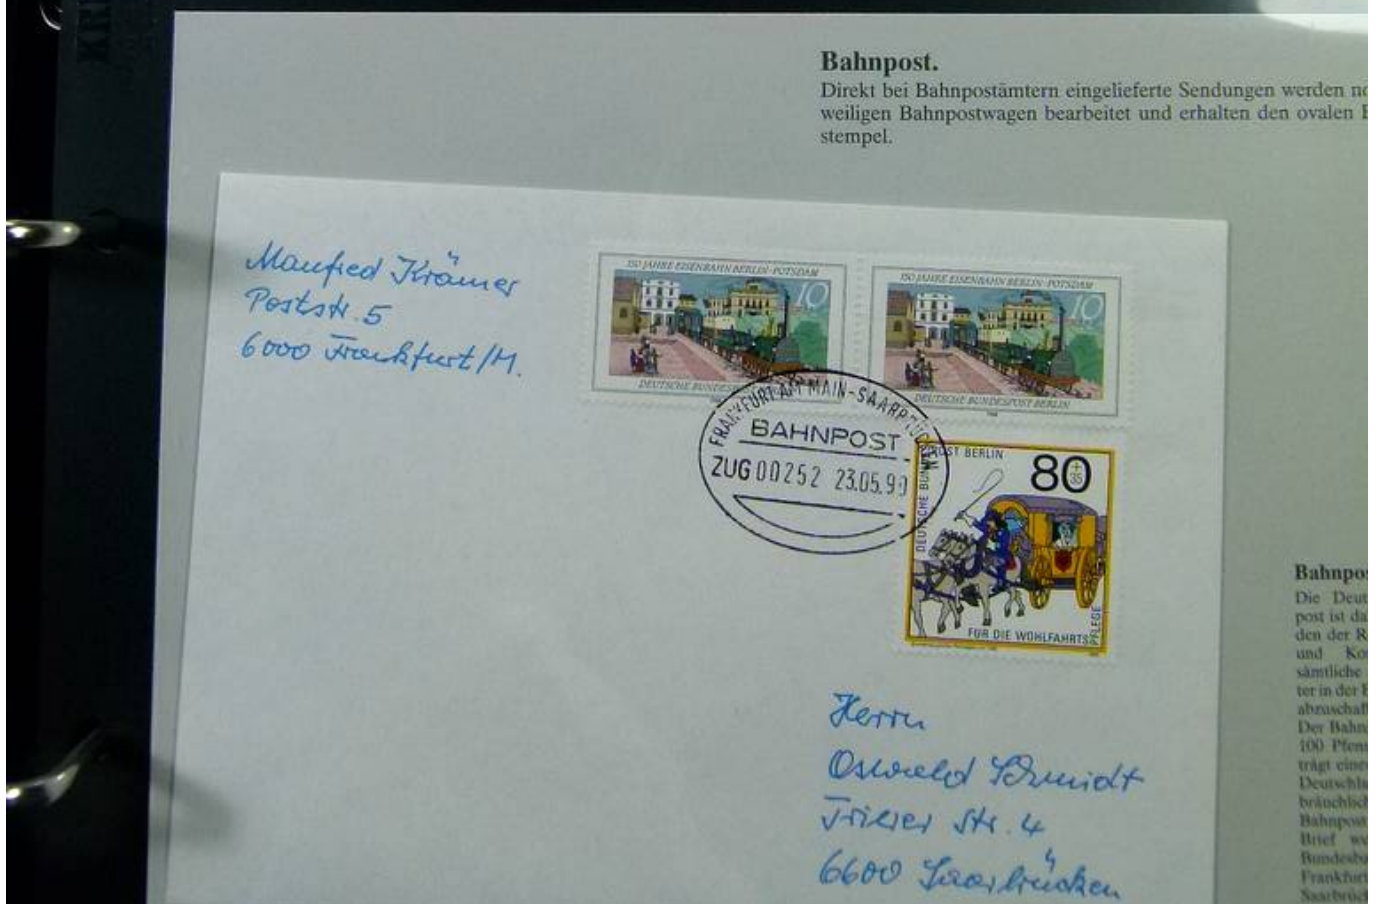 XIX
Bahnpost.
Direkt bei Bahnpostämtern eingelieferte Sendungen werden
weiligen Bahnpostwagen bearbeitet und erhalten den ovalen
stempel.
Manfred Krämer
Poststr. 5
6000 Frankfurt/M.
150 JAHRE EISENBAHN BERLIN-POTSDAM
10
DEUTSCHE BUNDESPOST
150 JAHRE EISENBAHN BERLIN-POTSDAM
10
DEUTSCHE BUNDESPOST BERLIN
FRANKFURT AM MAIN-SAARBRÜCKEN
BAHNPOST
ZUG 00252 23.05.90
DEUTSCHE BUNDESPOST BERLIN
80
+
35
FÜR DIE WOHLFAHRTSPFLEGE
Herrn
Oswald Schmidt
Trierer Str. 4
6600 Saarbrücken
Die
post ist
den der
und
sämtliche
ter in der
Der
100
trägt
Bahnpost
Brief
Frankfurt